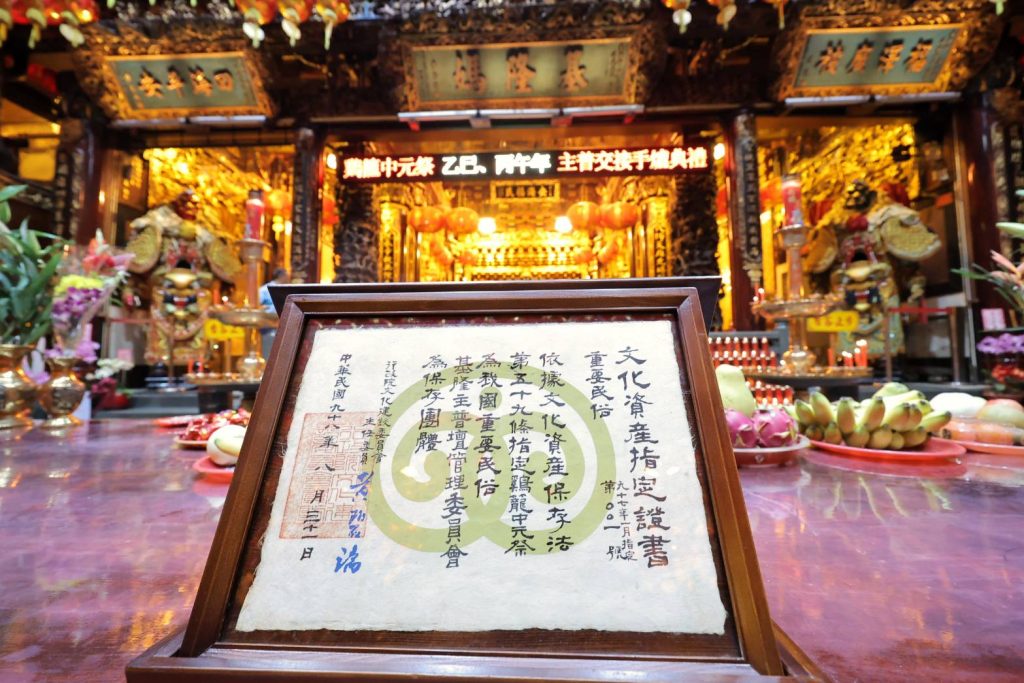 四海平安
基隆媽
福澤廣被
鷄籠中元祭 乙巳、丙午年 主普交接手爐典禮
文化資產指定證書
九十七年一月指定
第００一號
重要民俗
依據文化資產保存法
第五十九條指定鷄籠中元祭
為我國重要民俗
基隆主普壇管理委員會
為保存團體
行政院文化建設委員會
主任委員 黃碧端
中華民國九十八年八月三十一日